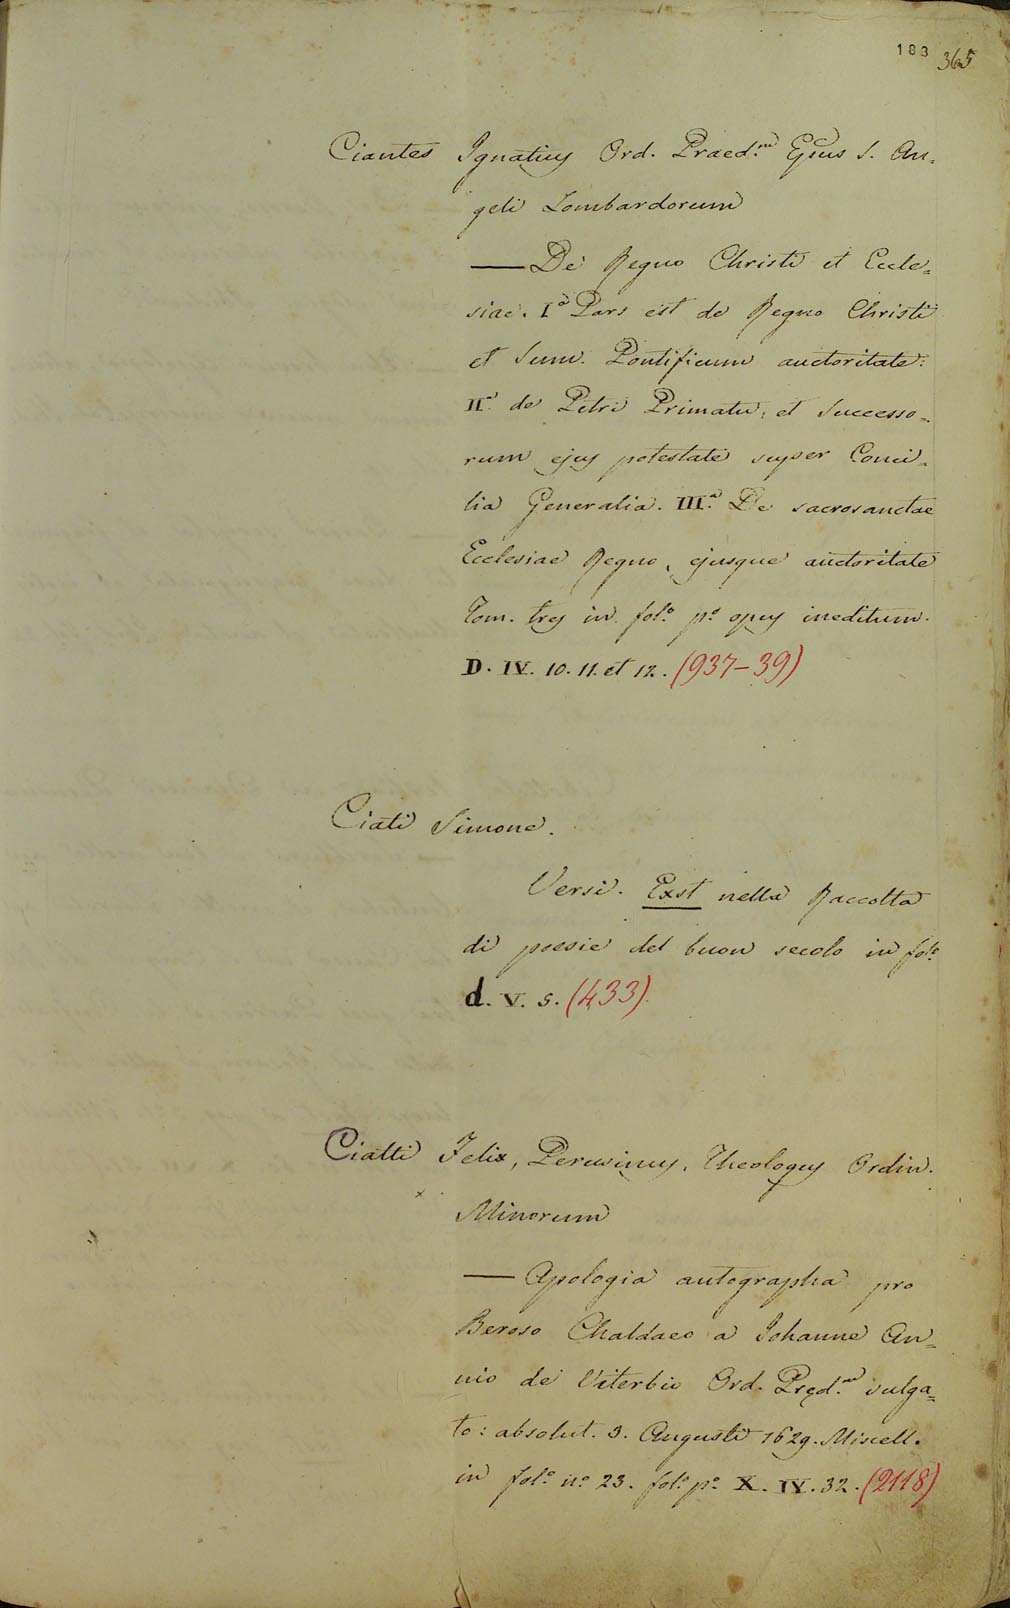 183 365
Ciantes Ignatius Ord. Praed.m Epus S. An=
geli Lombardorum
— De Regno Christi et Eccle=
siae. Iª Pars est de Regno Christi
et Sum. Pontificum auctoritate:
IIª de Petri Primatu, et Successo=
rum ejus potestate super Conci=
lia Generalia. IIIª De sacrosanctae
Ecclesiae Regno, ejusque auctoritate
Tom. tres in folº pº opus ineditum.
D. IV. 10. 11. et 12. (937-39)
Ciati Simone.
Versi. Exst nella Raccolta
di poesie del buon secolo in folº
d. V. 5. (433)
Ciatti Felix, Perusinus, Theologus Ordin.
Minorum
— Apologia autographa pro
Beroso Chaldaeo a Johanne An=
nio de Viterbio Ord. Pręd.m vulga=
to: absolut. 3. Augusti 1629. Miscell.
in folº nº 23. folº pº X. IV. 32. (2118)